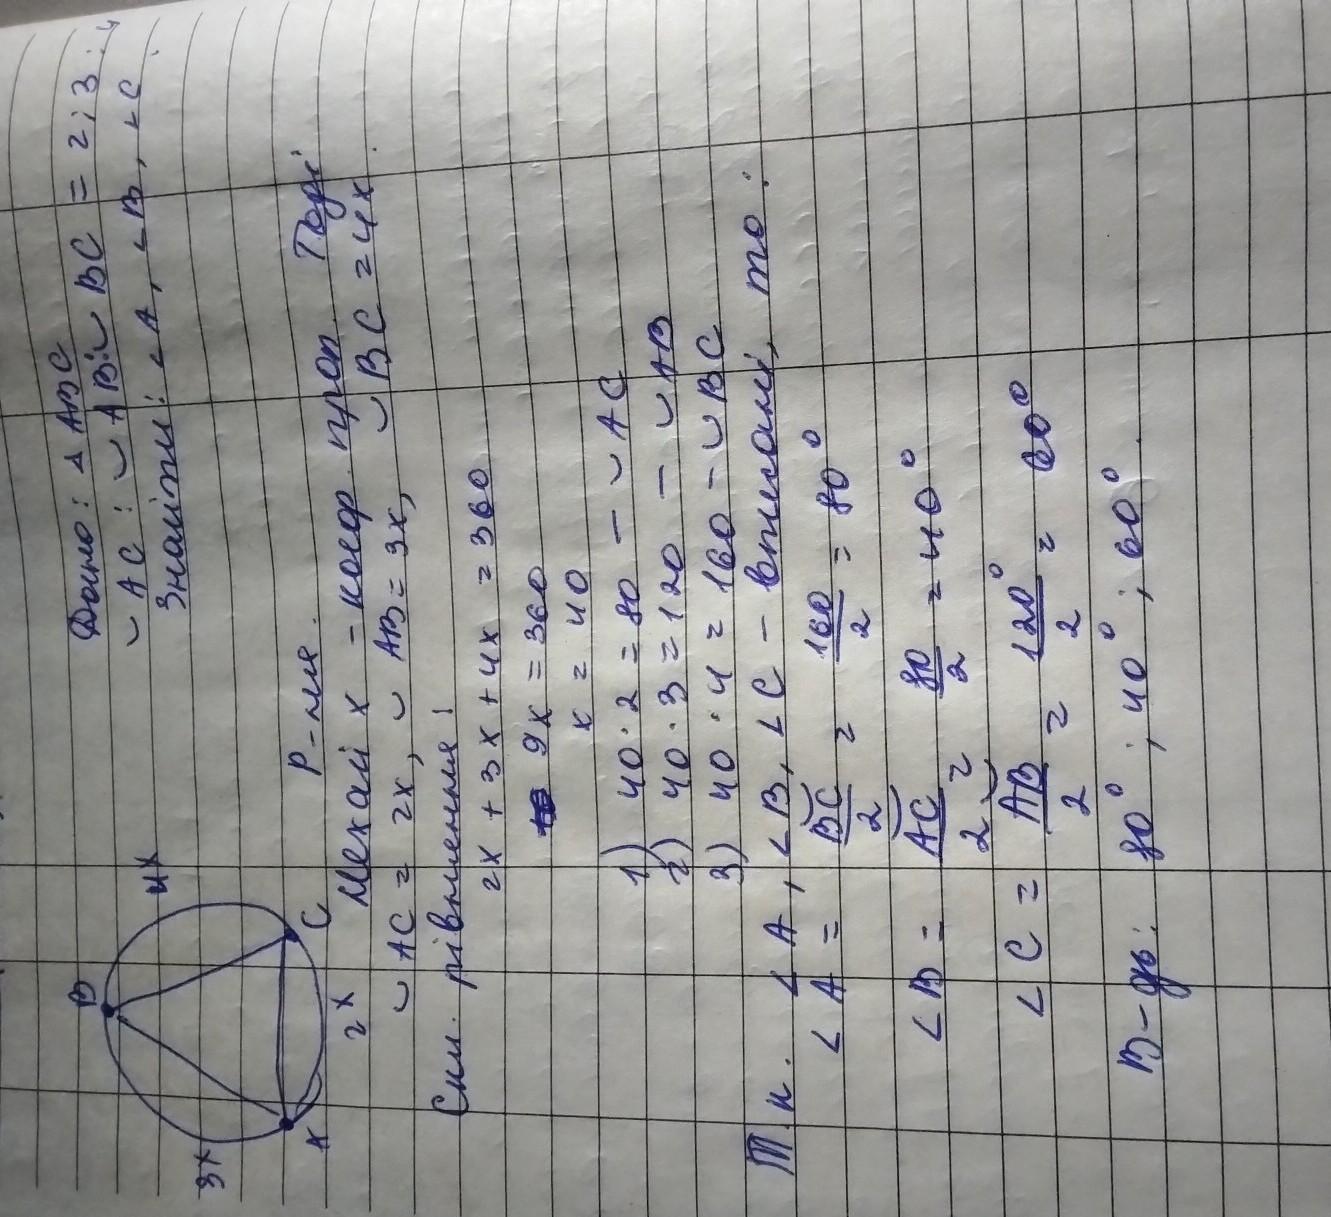 Дано: △ ABC
◡ AC : ◡ AB : ◡ BC = 2 : 3 : 4
Знайти: ∠A, ∠B, ∠C
B
4x
3x
A
C
2x
Р-ння.
Нехай x - коеф. проп. Тоді
◡ AC = 2x, ◡ AB = 3x, ◡ BC = 4x.
рівняння!
2x + 3x + 4x = 360
9x = 360
x = 40
1) 40 · 2 = 80 - ◡ AC
2) 40 · 3 = 120 - ◡ AB
3) 40 · 4 = 160 - ◡ BC
Т. к. ∠A, ∠B, ∠C - вписані, то:
∠A = ◡BC/2 = 160/2 = 80°
∠B = ◡AC/2 = 80/2 = 40°
∠C = ◡AB/2 = 120°/2 = 60°
В-дь: 80°; 40°; 60°.